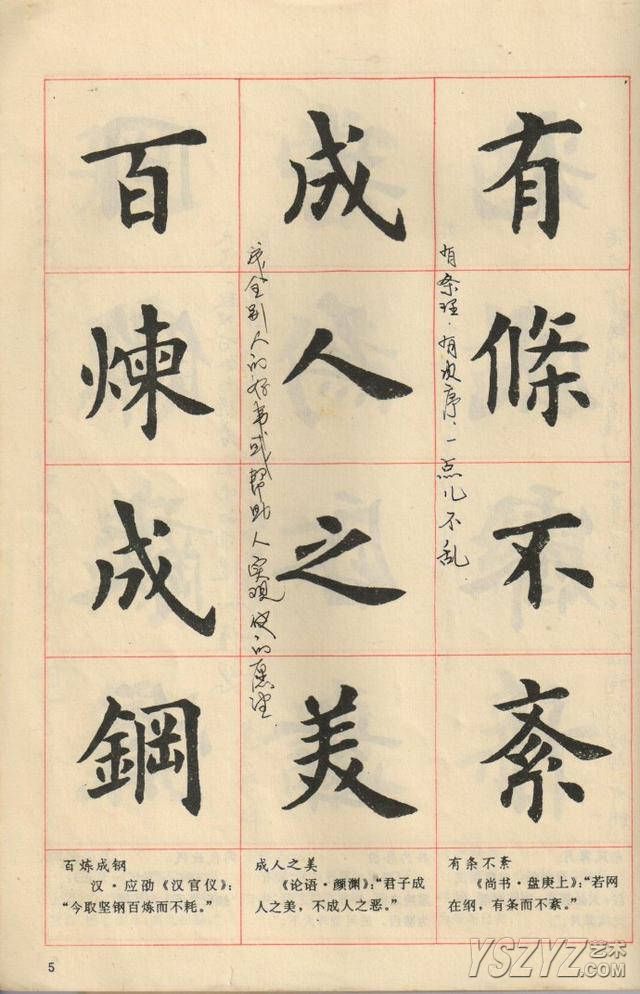 有條不紊
有条理．有次序．一点儿不乱
成人之美
成全别人的好事或帮助人实现他的愿望
百煉成鋼
有条不紊
《尚书·盘庚上》：“若网
在纲，有条而不紊。”
成人之美
《论语·颜渊》：“君子成
人之美，不成人之恶。”
百炼成钢
汉·应劭《汉官仪》：
“今取坚钢百炼而不耗。”
5
YSZYZ艺术
.COM